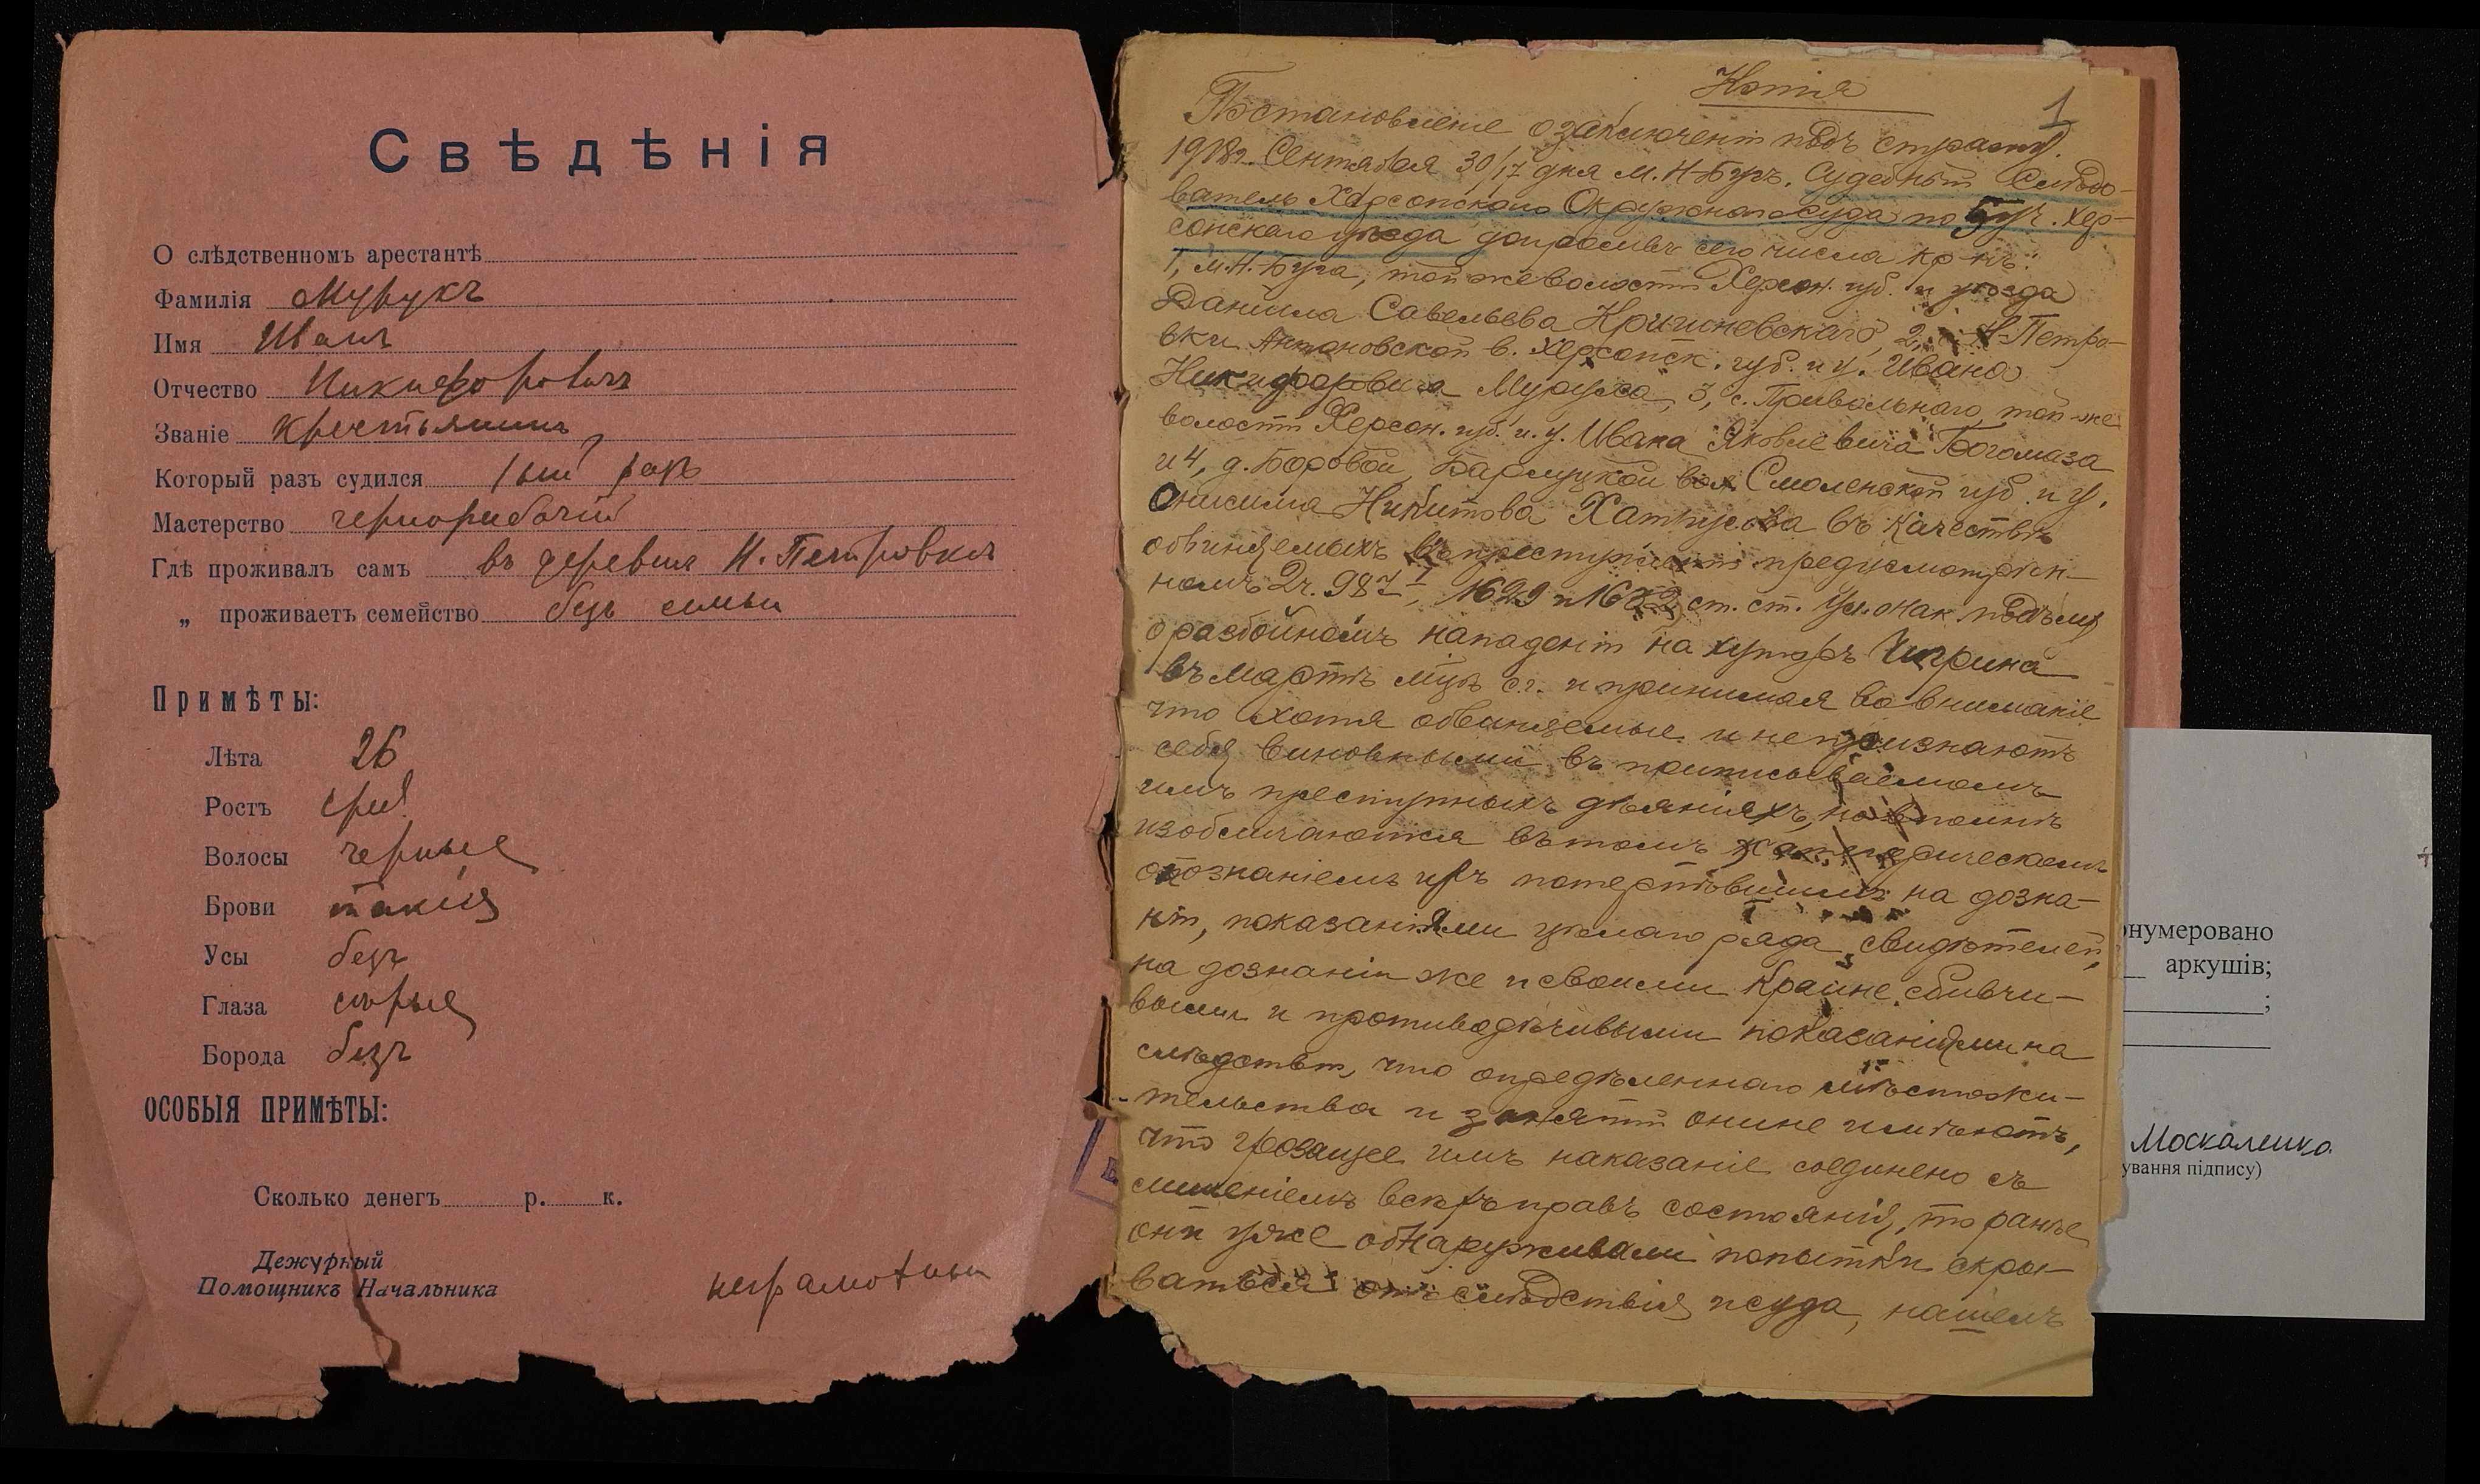 Свѣдѣнія
О слѣдственномъ арестантѣ
Фамилія Мурукъ
Имя Иванъ
Отчество Никифоровичъ
Званіе крестьянинъ
Который разъ судился 1ый разъ
Мастерство чернорабочій
Гдѣ проживалъ самъ въ деревнѣ Н. Петровкѣ
„ проживаетъ семейство безъ семьи
Примѣты:
Лѣта 26
Ростъ сред
Волосы черные
Брови такія
Усы безъ
Глаза сѣрые
Борода безъ
ОСОБЫЯ ПРИМѢТЫ:
Сколько денегъ р. к.
Дежурный
Помощникъ Начальника
неграмотный
Копія
1
Постановленіе о заключеніи подъ стражу.
1918г. Сентября 30/17 дня м. Н-Бугъ. Судебный Слѣдо-
ватель Херсонскаго Окружнаго суда по Буг. Хер-
сонскаго уѣзда допросивъ сего числа кр-нъ:
1, м. Н. Буга, той же волости Херсон. губ. и уѣзда
Данила Савельева Кришневскаго, 2, Н-Петро-
вки Антоновской в. Херсонск. губ. и у. Ивана
Никифоровича Мурука, 3, с. Привольнаго, той-же
волости Херсон. губ. и у. Ивана Яковлевича Богомаза
и 4, д. Боровой, вол. Смоленской губ. и у.
Онисима Никитова въ качествѣ
обвиняемыхъ въ преступленіи предусмотрѣн-
номъ 2ч. 987 1, 1629 и ст. ст. Ул. о нак. по дѣлу
о разбойномъ нападеніи на хуторъ Чигрина
въ мартѣ мцѣ с.г. и принимая во вниманіе
что хотя обвиняемые и не признаютъ
себя виновными въ приписываемомъ
имъ преступныхъ дѣяніяхъ, но вполнѣ
изобличаются въ томъ категорическимъ
опознаніемъ ихъ потерпѣвшими на дозна-
ніи, показаніями цѣлаго ряда свидѣтелей,
на дознаніи же и своими крайне сбивчи-
выми и противорѣчивыми показаніями на
слѣдствіи, что опредѣленнаго мѣстожи-
тельства и занятій они не имѣютъ,
что грозящее имъ наказаніе соединено съ
лишеніемъ всѣхъ правъ состоянія, то ранѣе
они уже обнаруживали попытки скры-
ваться отъ слѣдствія и суда, нашелъ
онумеровано
аркушів;
;
Москаленко
ування підпису)